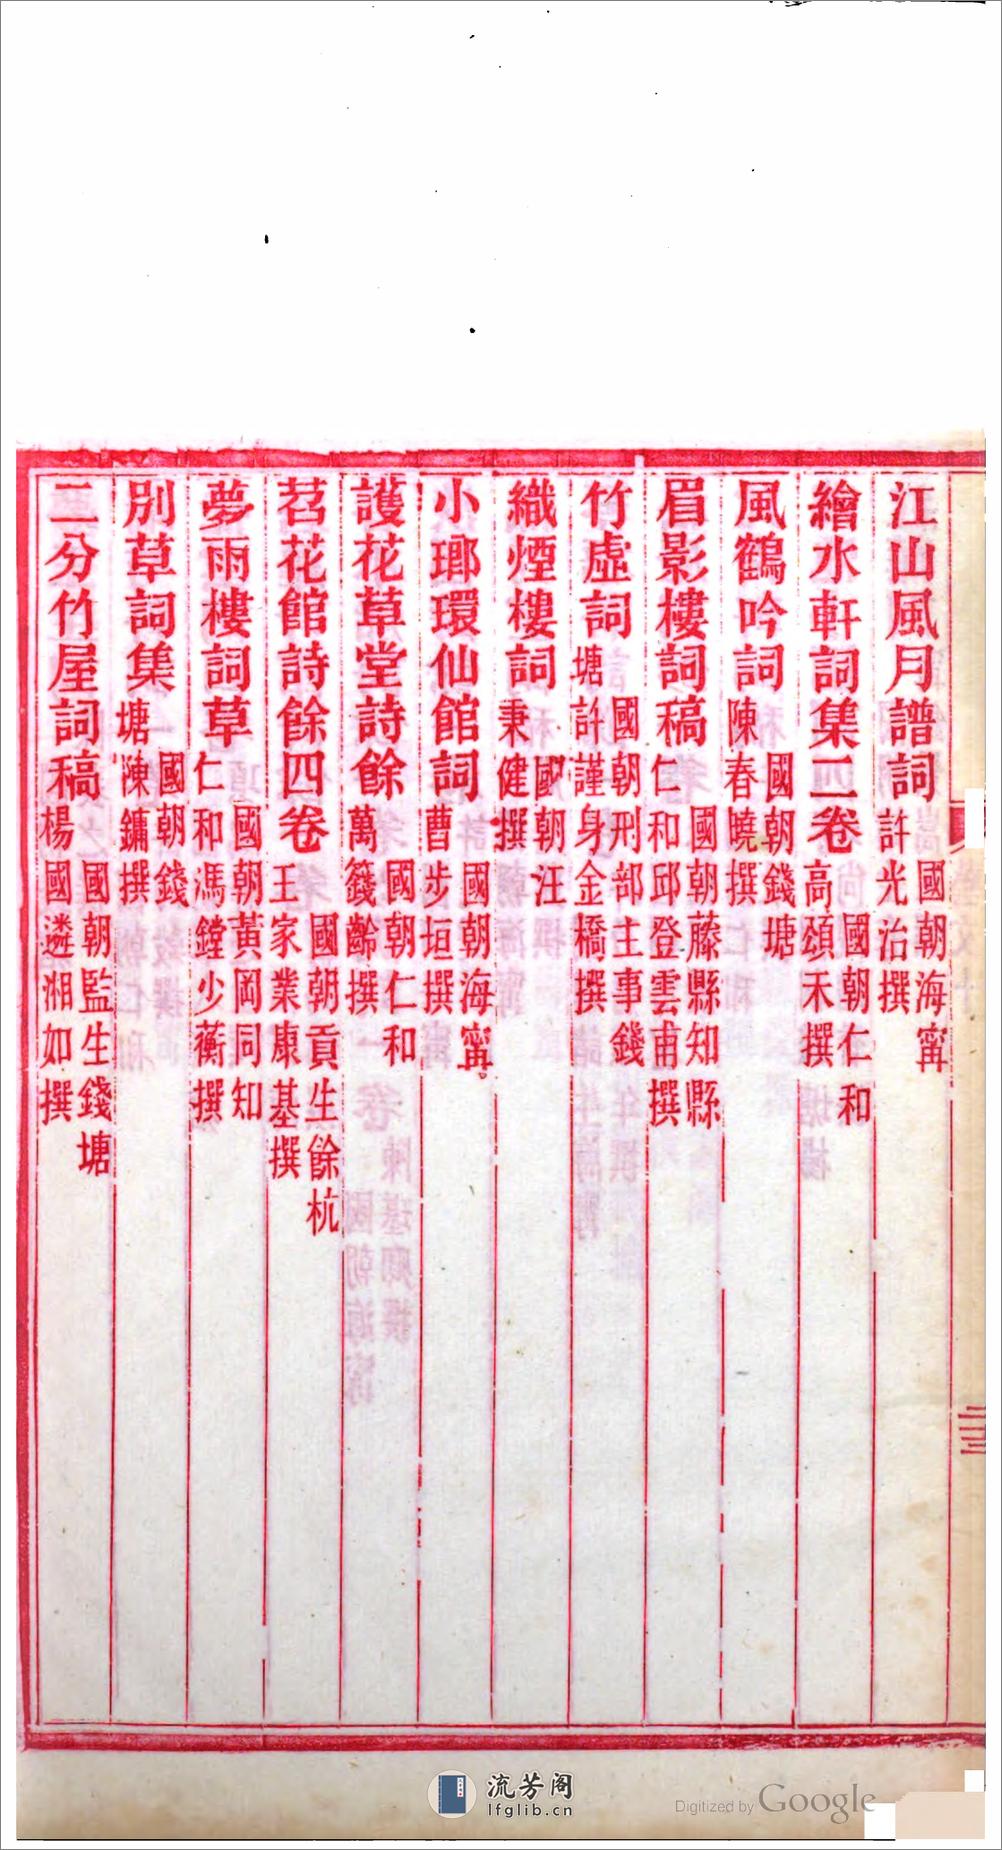 江山風月譜詞國朝海甯許光治撰
繪水軒詞集二卷國朝仁和高頌禾撰
風鶴吟詞國朝錢塘陳春曉撰
眉影樓詞稿國朝藤縣知縣仁和邱登雲甫撰
竹虛詞國朝刑部主事錢塘許謹身金橋撰
織煙樓詞國朝汪秉健撰
小瑯環仙館詞國朝海甯曹步垣撰
護花草堂詩餘國朝仁和萬籛齡撰
苕花館詩餘四卷國朝貢生餘杭王家業康基撰
夢雨樓詞草國朝黃岡同知仁和馮鏜少蘅撰
別草詞集國朝錢塘陳鏞撰
二分竹屋詞稿國朝監生錢塘楊國遴湘如撰
流芳阁
lfglib.cn
Digitized by Google